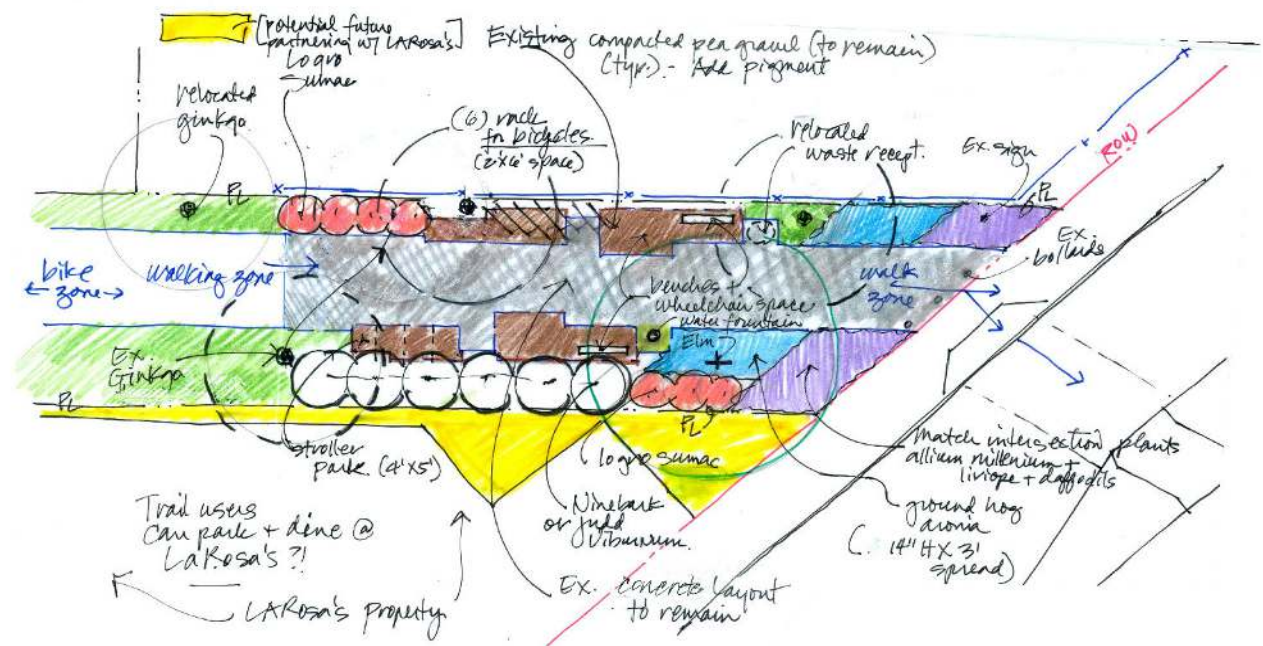 [potential future
partnering w/ LAROSA's]
Logro
Sumac
Existing compacted pea gravel (to remain)
(typ.) - Add pigment
relocated
ginkgo
(6) rack
for bicycles
(2'x6' space)
relocated
waste recept.
Ex. sign
ROW
PL
PL
Ex.
bollards
bike
zone
walking zone
walk
zone
benches +
wheelchair space
water fountain
Elm
Ex.
Ginkgo
PL
PL
stroller
park (4'x5')
logro sumac
Match intersection plants
allium millenium +
liriope + daffodils
Ninebark
or Judd
Viburnum
ground hog
aronia
( 14" H X 3'
spread)
Trail users
can park + dine @
LaRosa's ?!
LAROSA's property
Ex. concrete layout
to remain